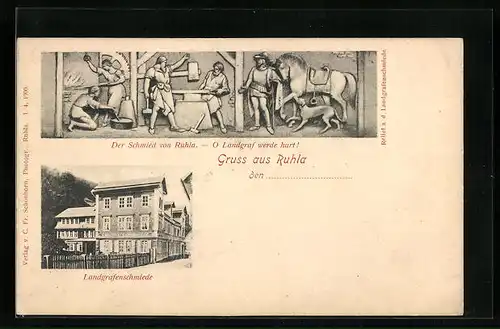 Der Schmied von Ruhla. — O Landgraf werde hart!
Relief a. d. Landgrafenschmiede
Gruss aus Ruhla
den
Landgrafenschmiede
Verlag v. C. Fr. Schönhorn, Photogr. Ruhla. 1. 4. 1799.